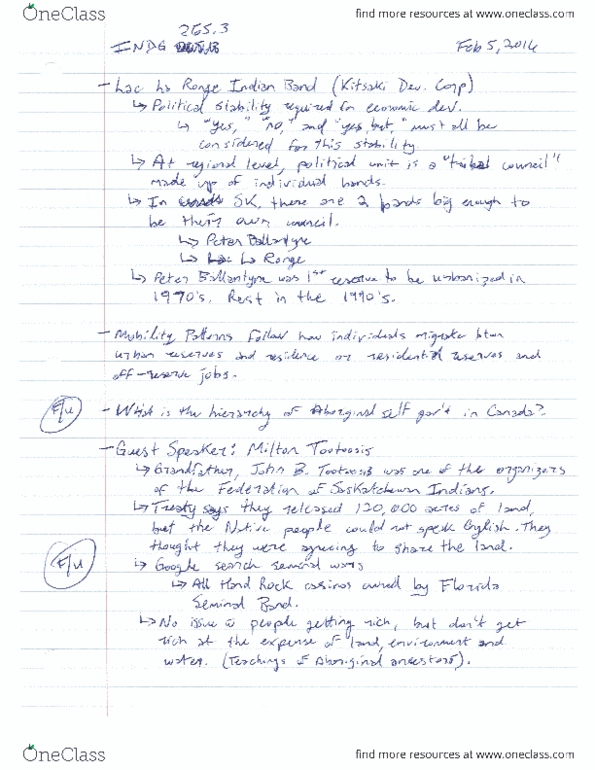 OneClass
find more resources at www.oneclass.com
265.3
INDG
Feb 5, 2016
- Lac La Ronge Indian Band (Kitsaki Dev. Corp)
↳ Political stability required for economic dev.
↳ "yes," "no," and "yes, but," must all be
considered for this stability
↳ At regional level, political unit is a "tribal council"
made up of individual bands.
↳ In SK, there are 2 bands big enough to
be their own council.
↳ Peter Ballantyne
↳ Lac La Ronge
↳ Peter Ballantyne was 1st reserve to be urbanized in
1970's. Rest in the 1990's.
- Mobility Patterns follow how individuals migrate btwn
urban reserves and residence or residential reserves and
off-reserve jobs.
F/u - What is the hierarchy of Aboriginal self gov't in Canada?
- Guest Speaker: Milton Tootoosis
↳ Grandfather, John B. Tootoosis was one of the organizers
of the Federation of Saskatchewan Indians.
↳ Treaty says they released 120,000 acres of land,
but the Native people could not speak English. They
thought they were agreeing to share the land.
F/u ↳ Google search seminal wars
↳ All Hard Rock casinos owned by Florida
Seminal Band.
↳ No issue people getting rich, but don't get
rich at the expense of land, environment and
water. (Teachings of Aboriginal ancestors).
OneClass
find more resources at www.oneclass.com